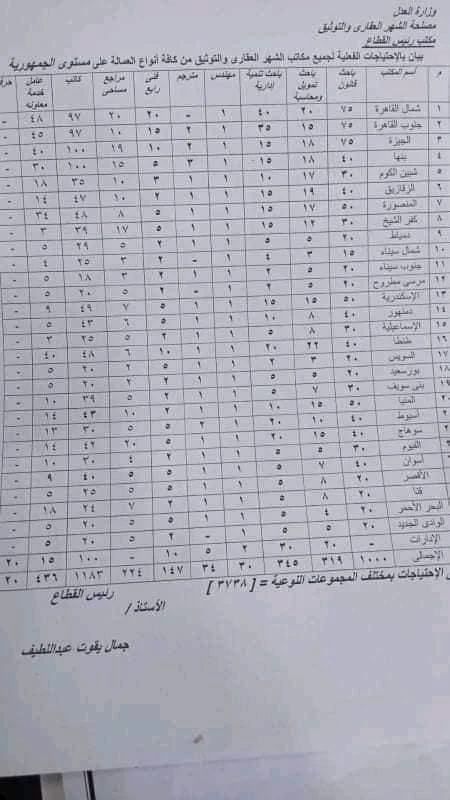 وزارة العدل
مصلحة الشهر العقارى والتوثيق
مكتب رئيس القطاع
بيان بالإحتياجات الفعلية لجميع مكاتب الشهر العقارى والتوثيق من كافة أنواع العمالة على مستوى الجمهورية
م اسم المكتب باحث قانون باحث تمويل ومحاسبة باحث تنمية إدارية مهندس مترجم فنى رابع مراجع مساحى كاتب عامل خدمة معاونه
١ شمال القاهرة ٧٥ ٢٠ ٤٠ ١ - ٢٠ ٢٠ ٩٧ ٤٨ -
٢ جنوب القاهرة ٧٥ ١٥ ٣٥ ١ ٢ ١٥ ١٠ ٩٧ ٤٥ -
٣ الجيزة ٧٥ ١٨ ١٥ ١ ٢ ١٠ ١٩ ١٠٠ ٤٠ -
٤ بنها ٤٠ ١٨ ١٥ ١ ٣ ٥ ١٥ ١٠٠ ٣٠ -
٥ شبين الكوم ٣٠ ١٧ ١٠ ١ ١ ٣ ١٠ ٣٥ ١٨ -
٦ الزقازيق ٤٠ ١٩ ١٥ ١ ١ ٢ ١٠ ٤٧ ١٤ -
٧ المنصورة ٥٠ ١٧ ١٥ ١ ١ ٥ ٨ ٤٨ ٣٤ -
٨ كفر الشيخ ٣٠ ١٢ ١٥ ١ ١ ٥ ١٧ ٣٩ ٣ -
٩ دمياط ٢٠ ٥ ٥ ١ ١ ٢ ٥ ٢٩ ٥ -
١٠ شمال سيناء ١٥ ٣ ٤ ١ - ٢ ٣ ٢٥ ٤ -
١١ جنوب سيناء ٢٠ ٥ ٢ ١ ١ ٢ ٣ ١٨ ٥ -
١٢ مرسى مطروح ٢٠ ٥ ٢ ١ - ٢ ٥ ٢٠ ٥ -
١٣ الإسكندرية ٥٠ ١٥ ١٥ ١ ١ ٥ ٧ ٤٩ ٩ -
١٤ دمنهور ٤٠ ٨ ١٠ ١ ١ ٥ ٦ ٤٣ ٥ -
١٥ الإسماعيلية ٣٠ ٨ ٥ ١ ١ ٢ ٥ ٢٥ ٣ -
١٦ طنطا ٤٠ ٢٢ ٢٠ ١ ١ ١٠ ٦ ٤٨ ٤٠ -
١٧ السويس ٢٠ ٣ ٢ ١ ١ ٥ ٢ ٢٠ ٥ -
١٨ بورسعيد ٢٠ ٥ ٥ ١ ١ ٢ ٢ ٢٠ ٥ -
بنى سويف ٣٠ ٧ ٥ ١ ١ ٢ ٥ ٣٩ ١٠ -
المنيا ٥٠ ١٥ ١٠ ١ ١ ٢ ١٠ ٤٣ ١٤ -
اسيوط ٤٠ ١٠ ٢٠ ١ ٢ ٥ ٥ ٣٠ ١٣ -
سوهاج ٤٠ ١٥ ٢٠ ١ ١ ٥ ٢٠ ٤٢ ١٤ -
الفيوم ٣٠ ٥ ٥ ١ ١ ٢ ٤ ٣٠ ١٠ -
أسوان ٤٠ ٧ ٥ ١ ١ ٥ ٥ ٤٠ ٩ -
الأقصر ٢٠ ٨ ٥ ١ ١ ٥ ٥ ٢٥ ٥ -
قنا ٢٠ ٨ ٥ ١ ١ ٢ ٧ ٢٤ ١٨ -
البحر الأحمر ٢٠ ٤ ٥ ١ ١ ٥ ٥ ٢٠ ٥ -
الوادى الجديد ٢٠ ٥ ٥ ١ - ٢ ٥ ٢٠ ٥ -
الإدارات - ٢٠ ٣٠ ٢ ٥ ١٠ - ١٠٠ ١٥ ٢٠
الإجمالى ١٠٠٠ ٣١٩ ٣٤٥ ٣٠ ٣٤ ١٤٧ ٢٢٤ ١١٨٣ ٤٣٦ ٢٠
الإحتياجات بمختلف المجموعات النوعية = [ ٣٧٣٨ ]
رئيس القطاع
الأستاذ /
جمال يقوت عبداللطيف